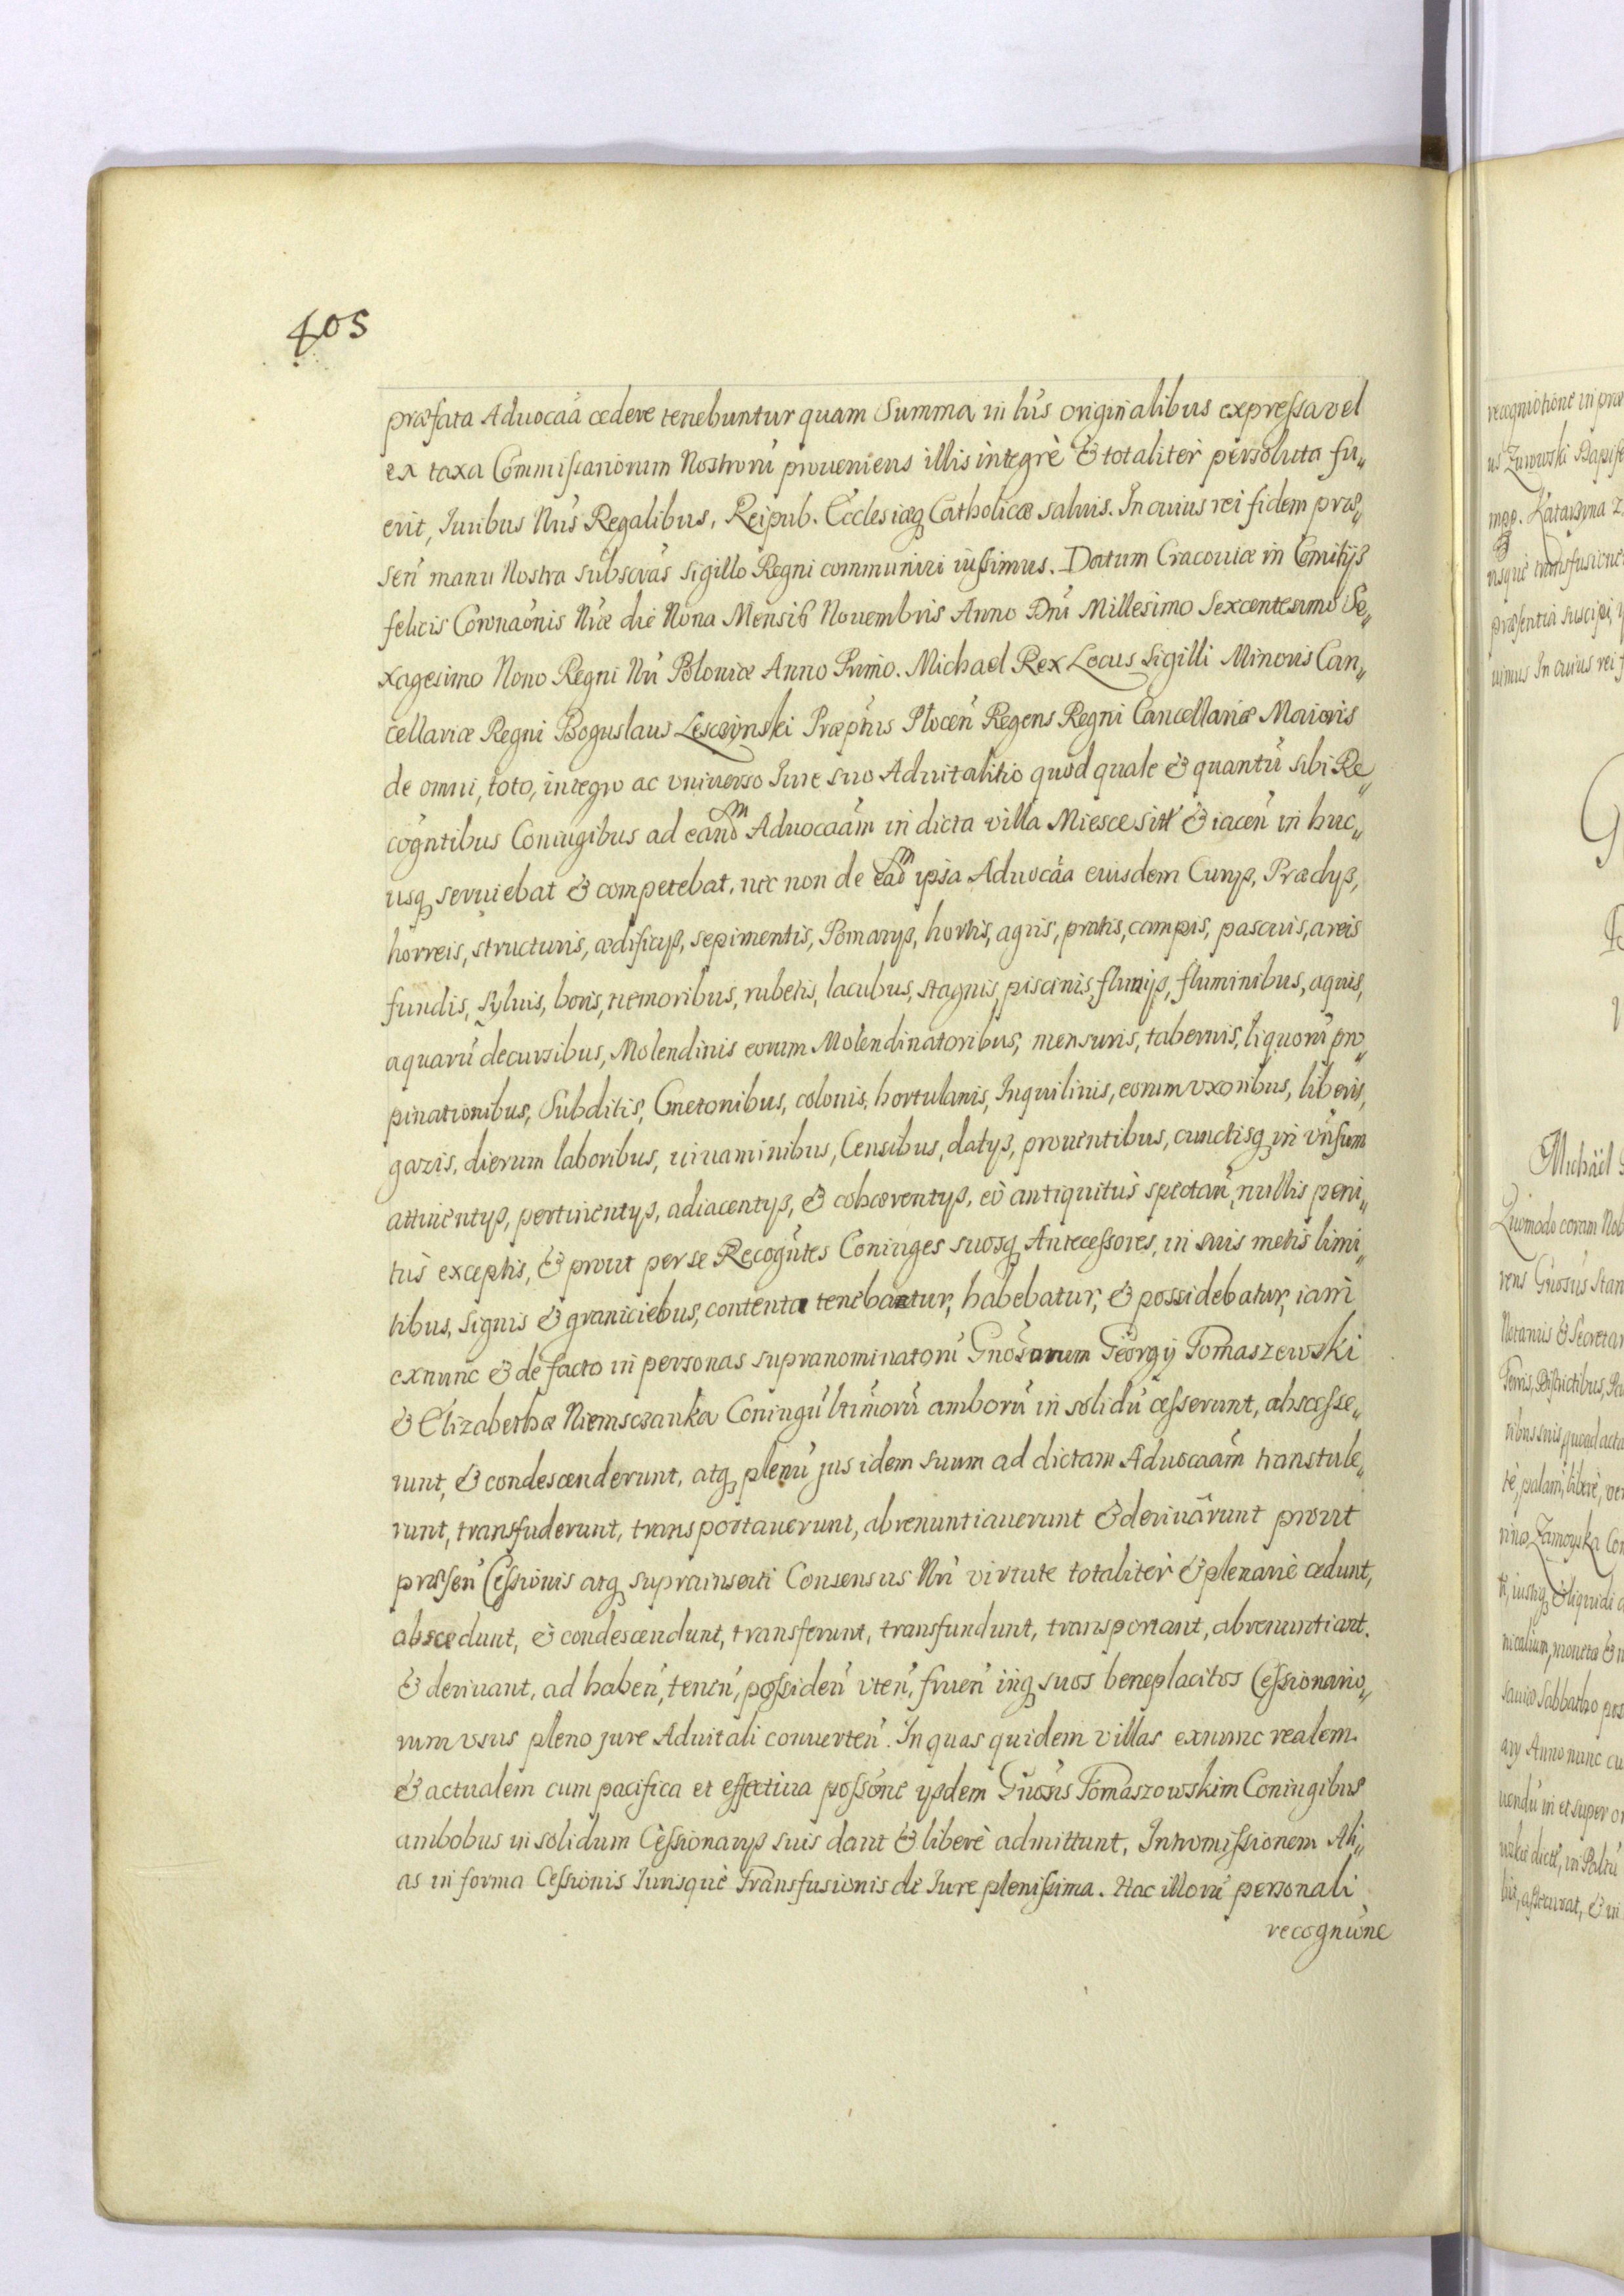 405
præfata Aduocãa cedere tenebuntur quam Summa in Lris originalibus expressa vel
ex taxa Commissariorum Nostrorũ proueniens illis integrè & totalitèr persoluta fu„
erit, Iuribus Nris Regalibus, Reipub. Ecclesiæq Catholicæ saluis. In cuius rei fidem præ„
sen̄ manu Nostra subscrãs sigillo Regni communiri iussimus. Datum Cracouiæ in Comitijs
felicis Coronãonis Nræ die Nona Mensis Nouembris Anno Dni Millesimo Sexcentesimo Se„
xagesimo Nono Regni Nri Poloniæ Anno Primo. Michael Rex Locus Sigilli Minoris Can„
cellariæ Regni Boguslaus Lesczynski Præptus Plocen̄ Regens Regni Cancellariæ Maioris
de omni, toto, integro ac vniuerso Iure suo Aduitalitio quod quale & quantũ sibi Re„
cogntibus Coniugibus ad eand̄m Aduocaãm in dicta villa Miesce sitt̄ & iacen̄ in huc„
usq seruiebat & competebat, nec non de eadm ipsa Aduocãa euisdem Curijs, Prædijs,
horreis, structuris, ædificijs, sepimentis, Pomarijs, hortis, agris, pratis, campis, pascuis, areis
fundis, syluis, boris, nemoribus, rubetis, lacubus, stagnis, piscinis, fluuijs, fluminibus, aquis,
aquarũ decursibus, Molendinis eorum Molendinatoribus, mensuris, tabernis, liquorũ pro„
pinationibus, Subditis, Cmetonibus, colonis, hortulanis, Inquilinis, eorum vxoribus, liberis,
gazis, dierum laboribus, uiuaminibus, Censibus, datijs, prouentibus, cunctisq in vn̄sum
attinentijs, pertinentijs, adiacentijs, & cohærentijs, eò antiquitùs spectan̄, nullis peni„
tùs exceptis, & prout per se Recogñtes Coniuges suosq Antecessores, in suis metis limi„
tibus, signis & graniciebus, contenta tenebatur, habebatur, & possidebatur, iam
exnunc & de facto in personas supranominatorũ Gnõsorum Georgij Tomaszewski
& Elizabethæ Niemsczanka Coniugũ vltimorũ amborũ in solidũ cesserunt, abscesse„
runt, & condescenderunt, atq plenũ jus idem suum ad dictam Aduocaãm transtule„
runt, transfuderunt, transportauerunt, abrenuntiauerunt & deriuârunt prout
præsen̄ Cessionis atq suprainserti Consensus Nri virtute totalitèr & plenariè cedunt,
abscedunt, & condescendunt, transferunt, transfundunt, transportant, abrenuntiant.
& deriuant, ad haben̄, tenen̄, possiden̄ vten̄, fruen̄ inq suos beneplacitos Cessionario„
rum vsus pleno jure Aduitali conuerten̄. In quas quidem villas exnunc realem
& actualem cum pacifica et effectiua possõne ijsdem Gnosis Tomaszowskim Coniugibus
ambobus in solidum Cessionarijs suis dant & liberè admittunt, Intromissionem Ali„
as in forma Cessionis Iurisquè Transfusionis de Iure plenissima. Hac illorũ personali
recognitione